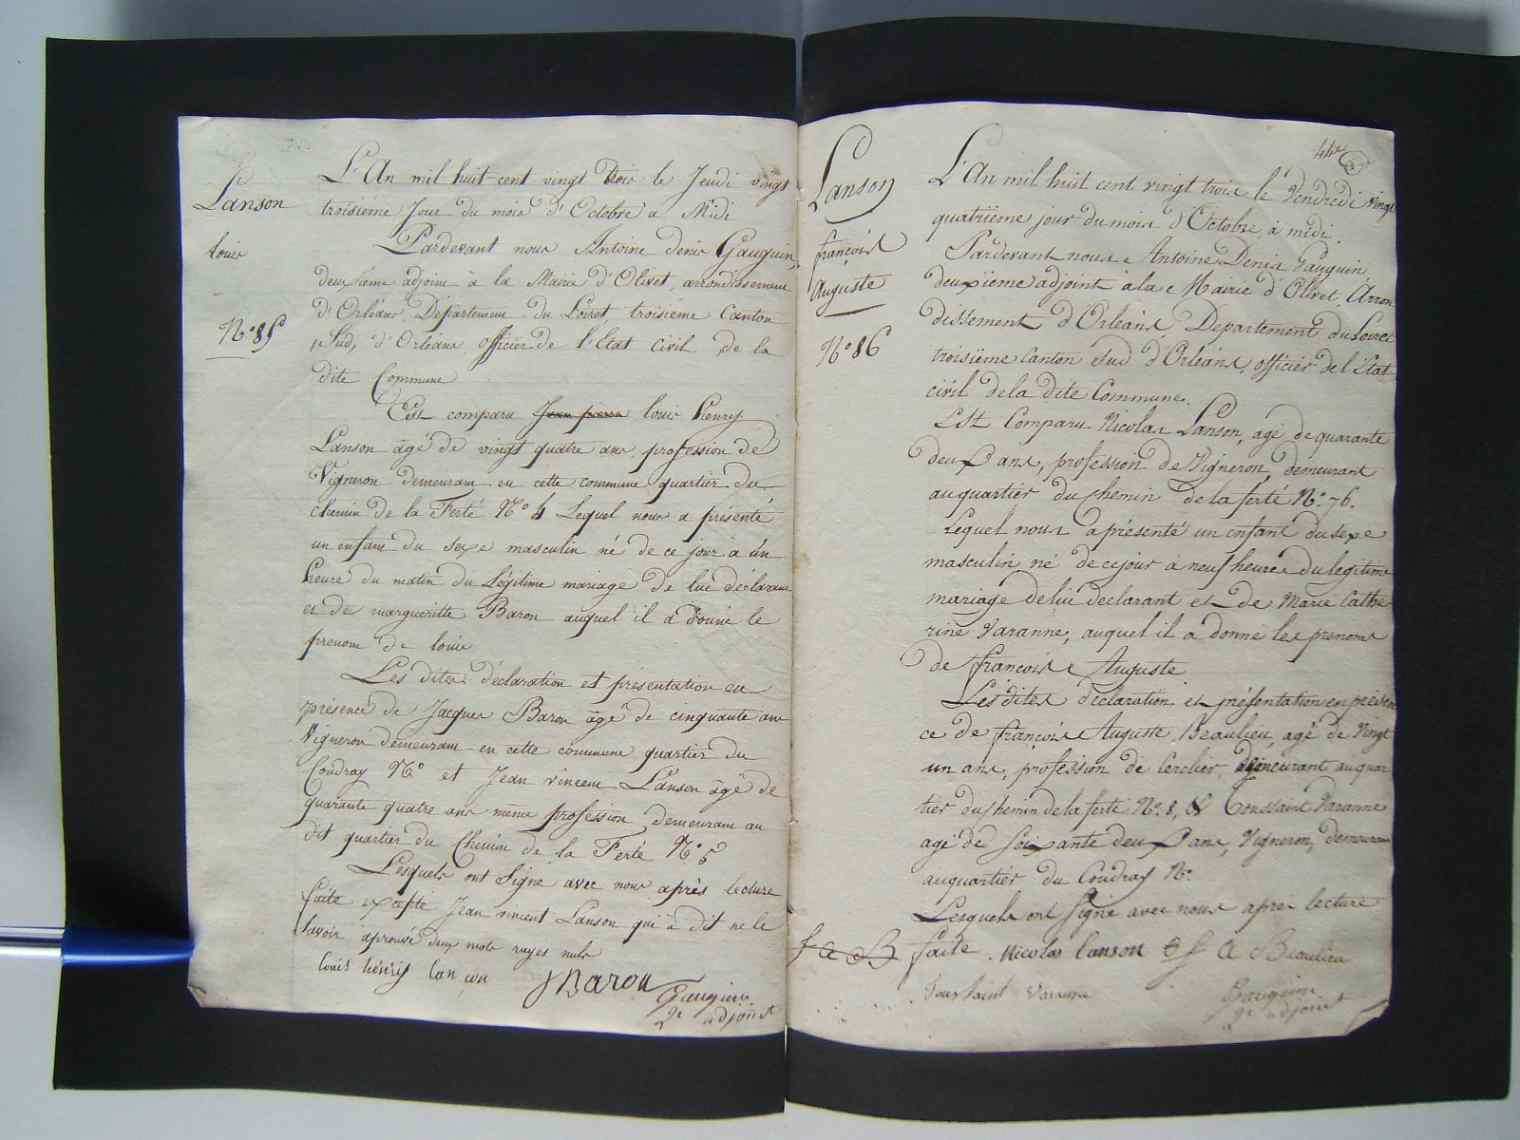 Lanson
louis
N° 85
L'An mil huit cent vingt trois le Jeudi vingt
troisieme Jour du mois d'Octobre a Midi
Pardevant nous Antoine denis Gauguin,
deuxième adjoint à la Mairie d'Olivet, arrondissement
d'Orléans Département du Loiret troisieme Canton
Sud, d'Orléans officier de l'Etat civil de la
dite Commune
Est comparu Jean pierre louis henry
Lanson âgé de vingt quatre ans, profession de
Vigneron demeurant en cette commune quartier du
chemin de la Ferté N° 4 Lequel nous a présenté
un enfant du sexe masculin né de ce jour a un
heure du matin du Légitime mariage de lui déclarant
et de margueritte Baron auquel il a donné le
prenom de louis
Les dites déclaration et présentation en
présence de Jacques Baron âgé de cinquante ans
Vigneron demeurant en cette commune quartier du
Coudray N° et Jean vincent Lanson âgé de
quarante quatre ans même profession demeurant au
dit quartier du Chemin de la Ferté N° 5
Lesquels ont Signé avec nous après lecture
faite excepté Jean vincent Lanson qui a dit ne le
savoir aprouvé deux mots rayés nuls
louis henris lanson J Baron Gauguin
2e adjoint
44e
Lanson
françois
Auguste
N° 86
L'An mil huit cent vingt trois le Vendredi vingt
quatrième jour du mois d'Octobre, à midi.
Pardevant nous Antoine Denis Gauguin,
deuxieme adjoint à la Mairie d'Olivet, Arron
dissement d'Orléans Département du Loiret
troisième Canton Sud d'Orléans, officier de l'Etat
civil de la dite Commune.
Est Comparu Nicolas Lanson, agé de quarante
deux ans, profession de Vigneron, demeurant
au quartier du chemin de la ferté N° 76.
Lequel nous a présenté un enfant du sexe
masculin né de ce jour à neuf heures du legitime
mariage de lui declarant et de Marie Cathe
rine Varanne, auquel il a donné les prenoms
de françois Auguste
Les dites déclaration et présentation en présen
ce de françois Auguste Beaulieu agé de Vingt
un ans, profession de Cerclier, demeurant au quar
tier du chemin de la ferté N° 8, & Toussaint Varanne
agé de soixante deux ans, Vigneron, demeurant
au quartier du Coudray N°
Lesquels ont signé avec nous apres lecture
f a B faite. Nicolas lanson f a Beaulieu
Toussaint Varanne Gauguin
2e adjoint